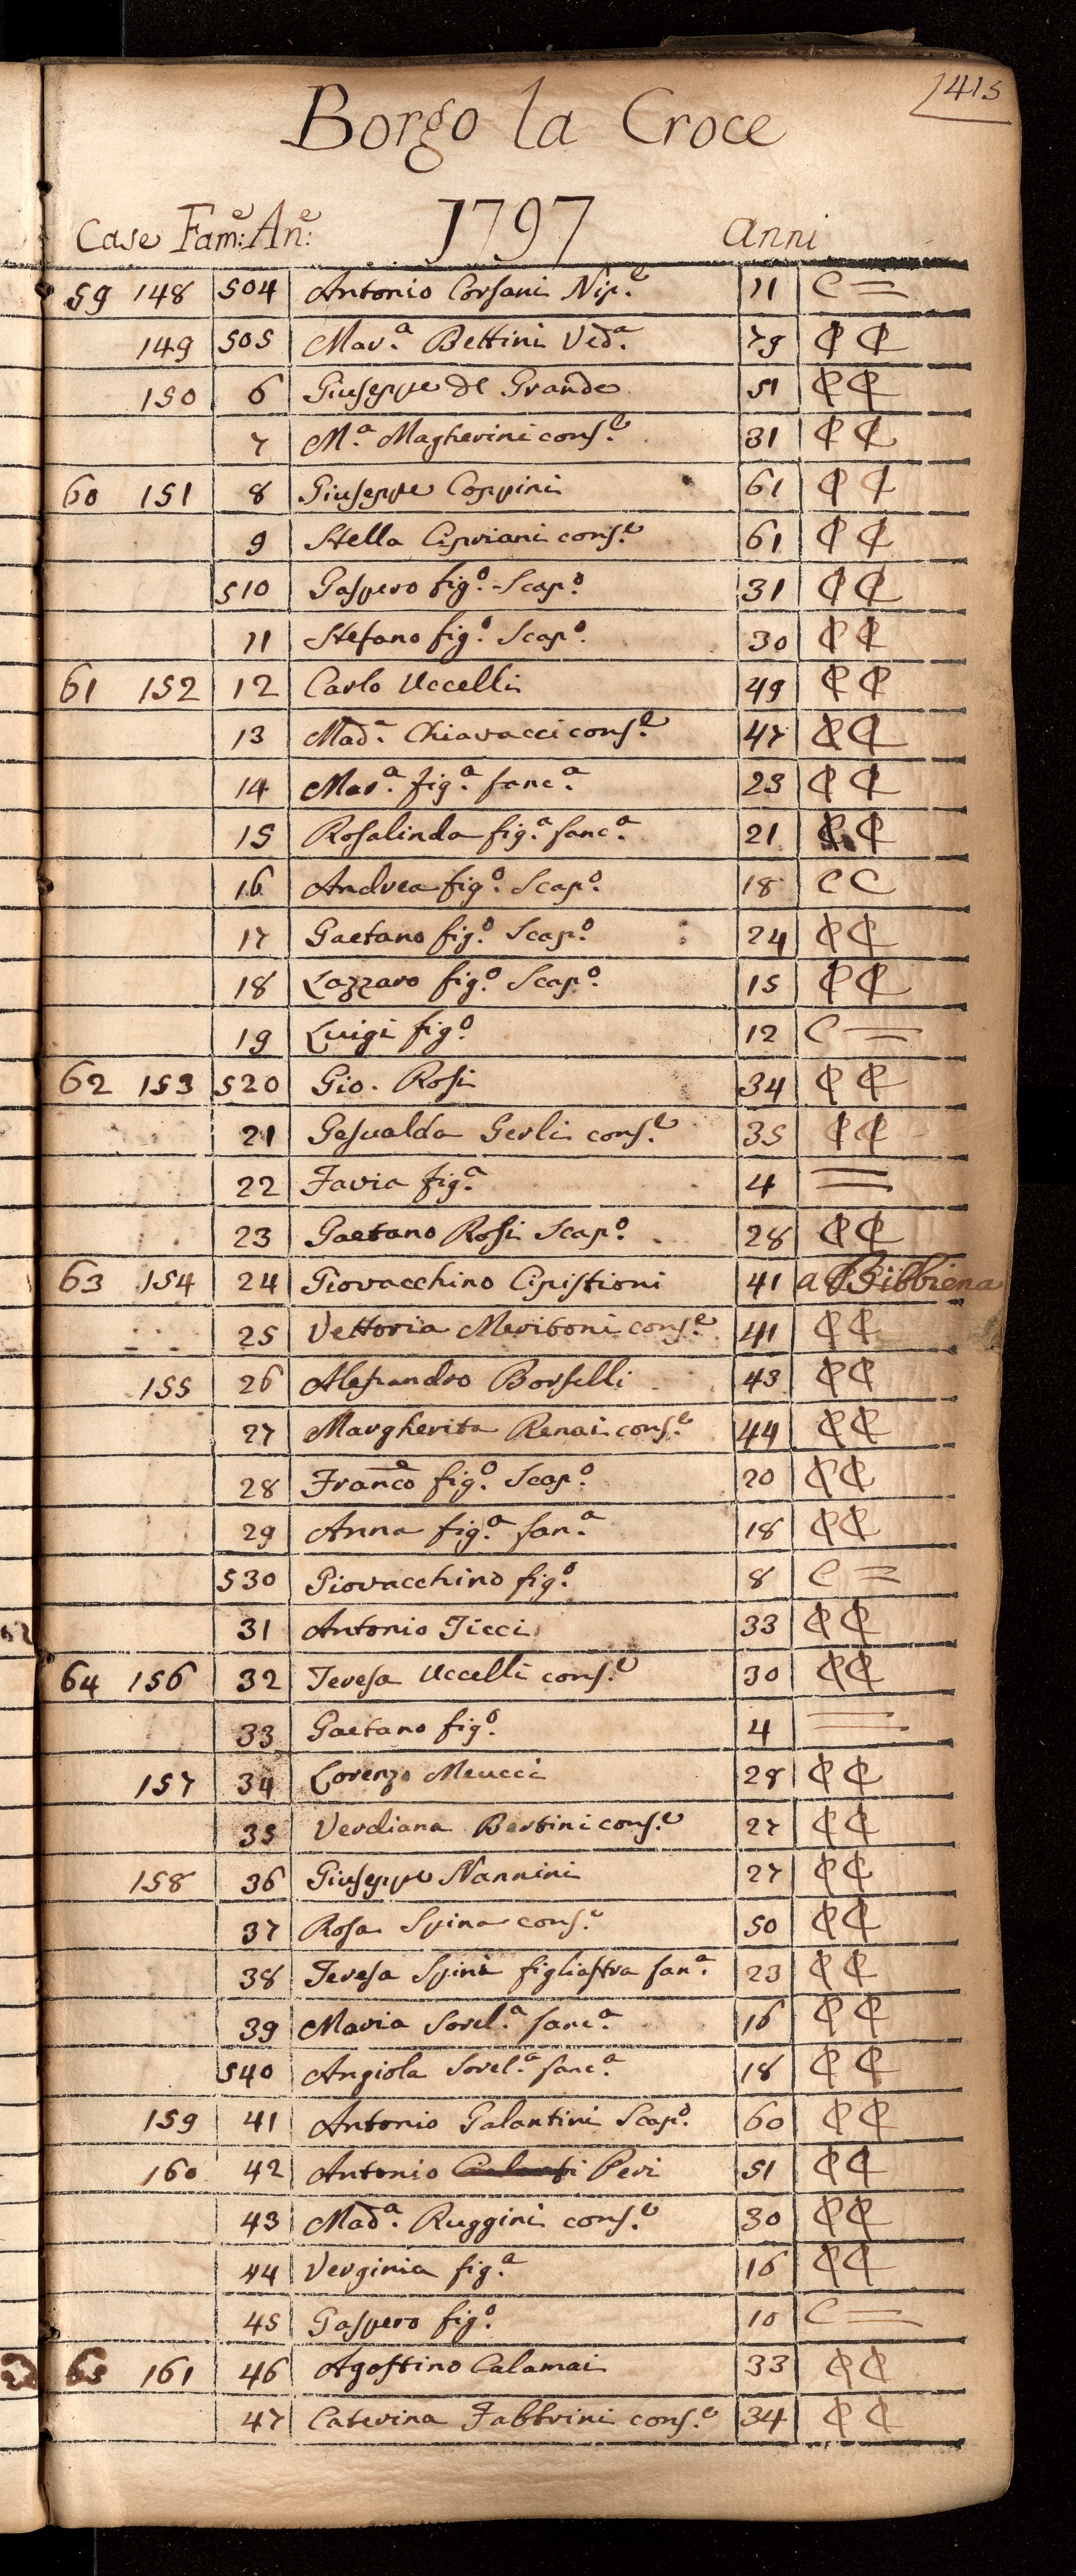 1415
Borgo la Croce
Case Fam:e An:e 1797 anni
59 148 504 Antonio Corsani Nip.e 11 C =
149 505 Mar.a Bettini Ved.a 79 ₵ ₵
150 6 Giuseppe del Grande 51 ₵ ₵
7 M.a Magherini cons.e 31 ₵ ₵
60 151 8 Giuseppe Coppini 61 ₵ ₵
9 Stella Cipriani cons.e 61 ₵ ₵
510 Gaspero fig.o Scap.o 31 ₵ ₵
11 Stefano fig.o Scap.o 30 ₵ ₵
61 152 12 Carlo Uccelli 49 ₵ ₵
13 Mad.a Chiavacci cons.e 47 ₵ ₵
14 Mar.a fig.a fanc.a 23 ₵ ₵
15 Rosalinda fig.a fanc.a 21 ₵ ₵
16 Andrea fig.o Scap.o 18 C C
17 Gaetano fig.o Scap.o : 24 ₵ ₵
18 Lazzaro fig.o Scap.o 15 ₵ ₵
19 Luigi fig.o 12 C =
62 153 520 Gio. Rosi 34 ₵ ₵
21 Gesualda Gerli cons.e 35 ₵ ₵
22 Favia fig.a 4 =
23 Gaetano Rosi Scap.o 28 ₵ ₵
63 154 24 Giovacchino Cipistioni 41 a Bibbiena
25 Vettoria Meriboni cons.e 41 ₵ ₵
155 26 Alesandro Borselli 43 ₵ ₵
27 Margherita Renai cons.e 44 ₵ ₵
28 Franc.o fig.o Scap.o 20 ₵ ₵
29 Anna fig.a fan.a 18 ₵ ₵
530 Giovacchino fig.o 8 C =
31 Antonio Ticci 33 ₵ ₵
64 156 32 Teresa Uccelli cons.e 30 ₵ ₵
33 Gaetano fig.o 4 =
157 34 Lorenzo Meucci 28 ₵ ₵
35 Verdiana Bertini cons.e 27 ₵ ₵
158 36 Giuseppe Nannini 27 ₵ ₵
37 Rosa Spina cons.e 50 ₵ ₵
38 Teresa Spina figliastra fan.a 23 ₵ ₵
39 Maria Sorel.a fanc.a 16 ₵ ₵
540 Angiola Sorel.a fanc.a 18 ₵ ₵
159 41 Antonio Galantini Scap.o 60 ₵ ₵
160 42 Antonio Peri 51 ₵ ₵
43 Mad.a Ruggini cons.e 30 ₵ ₵
44 Verginia fig.a 16 ₵ ₵
45 Gaspero fig.o 10 C =
65 161 46 Agostino Calamai 33 ₵ ₵
47 Caterina Fabbrini cons.e 34 ₵ ₵